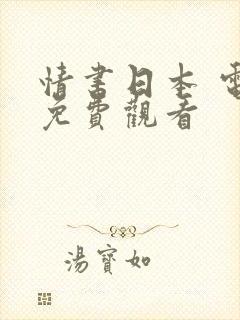 情書日本 電
免費觀看
湯寶如